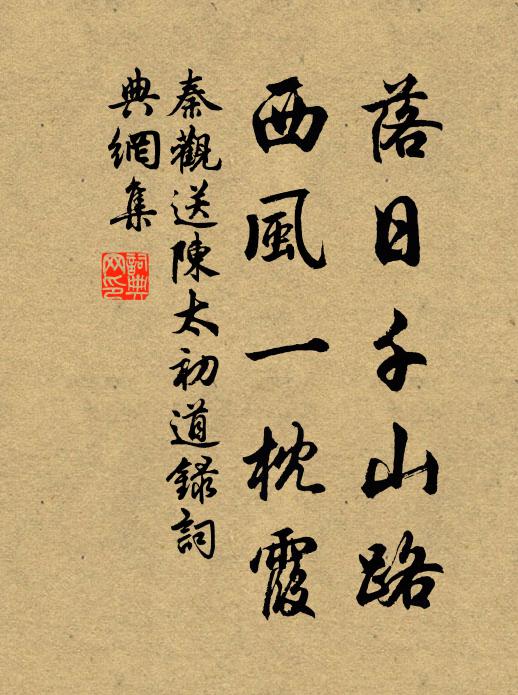 落日千山路
西風一枕霞
秦觀送陳太初道録詞
典網集
詞典網印